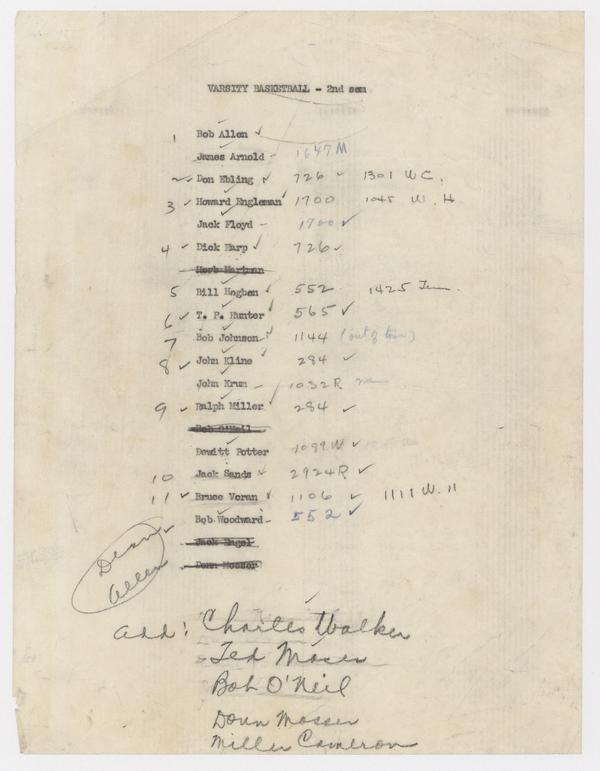 VARSITY BASKETBALL - 2nd sem
1 Bob Allen ✓
James Arnold - 1647M
2 ✓ Don Ebling ✓ 726 ✓ 1301 W C.
3 ✓ Howard Engleman ✓ 1700 1045 W. H.
Jack Floyd - 1700 ✓
4 ✓ Dick Harp ✓ 726 ✓
Herb Hartman
5 Bill Hogben ✓ 552 1425 Tenn.
6 ✓ T. P. Hunter ✓ 565 ✓
7 Bob Johnson ✓ 1144 (out of town)
8 ✓ John Kline ✓ 284 ✓
John Krum - 1032R
9 ✓ Ralph Miller ✓ 284 ✓
Bob O'Neil
Dewitt Potter 1089W ✓
10 Jack Sands ✓ 2924R ✓
11 ✓ Bruce Voran ✓ 1106 ✓ 1111 W. 11
Bob Woodward - 552 ✓
Jack Engel
Donn Mosser
Dean
Allen
add: Charles Walker
Ted Moser
Bob O'Neil
Donn Mosser
Miller Cameron